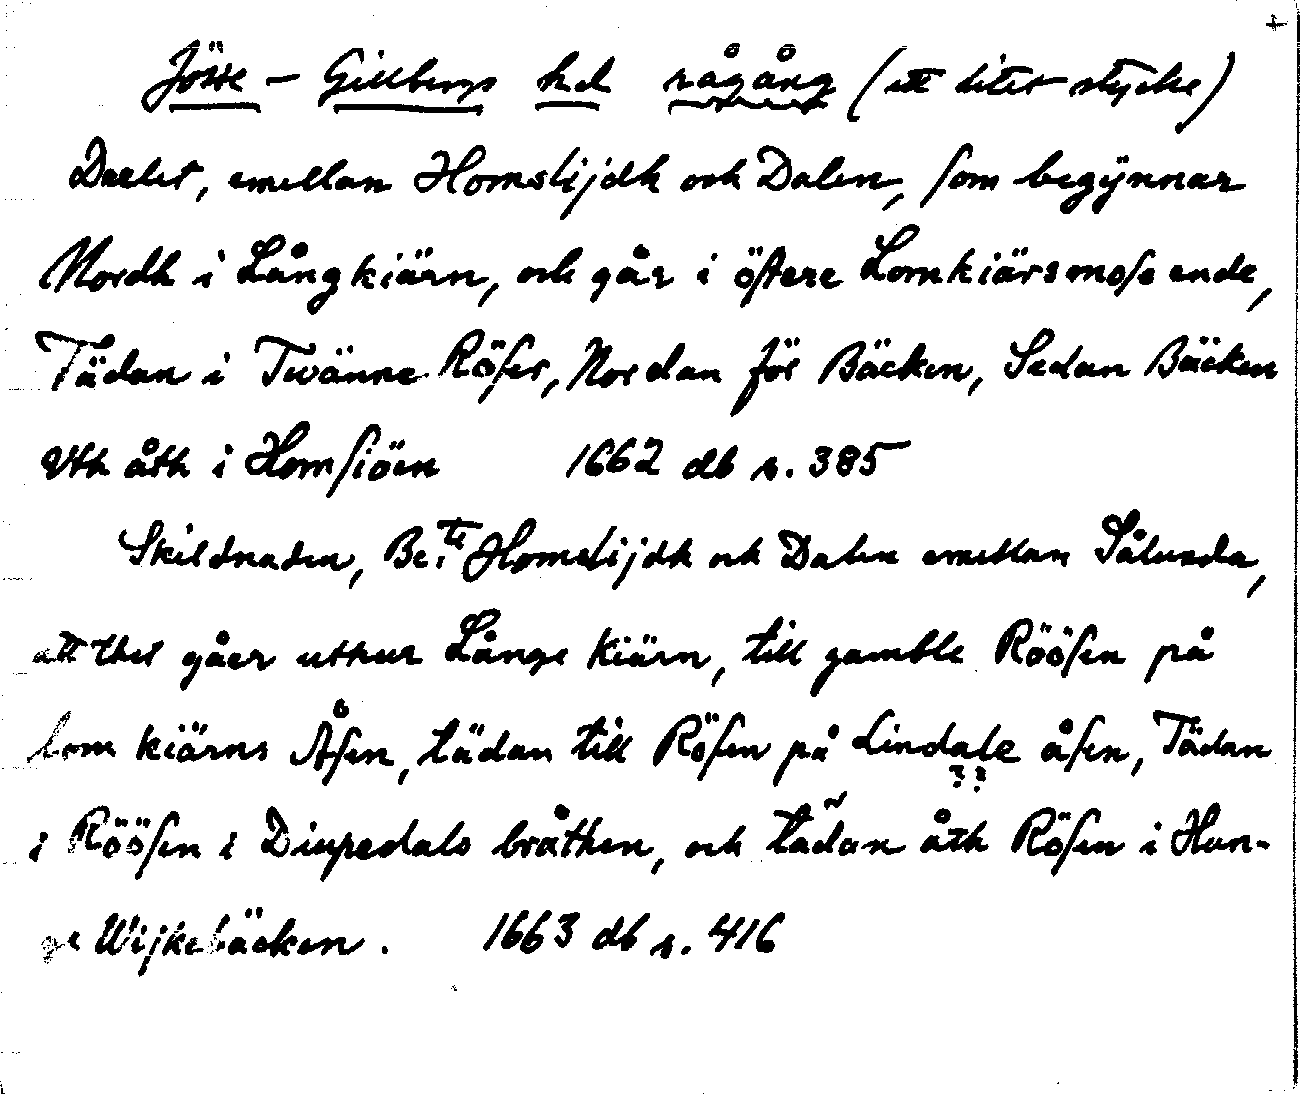 +
Jösse – Gillbergs hd rågång (ett litet stycke)
Deelet, emellan Homslijdh och Dalen, som begÿnnar
Nordh i Långkiärn, och går i östere Lomkiärsmose ende,
Tädan i Twänne Röser, Nordan för Bäcken, Sedan Bäcken
Vth åth i Homsiöen 1662 db s. 385
Skildnaden, Be:te Homslijdh och Dalen emellan Sålunda,
att thet gåer uthur Långe kiärn, till gamble Röösen på
Lom kiärns Åsen, tädan till Rösen på Lindale åsen, Tädan
??
i Röösen i Diupedals bråthen, och tädan åth Rösen i Hun-
ge Wijkebäcken. 1663 db s. 416